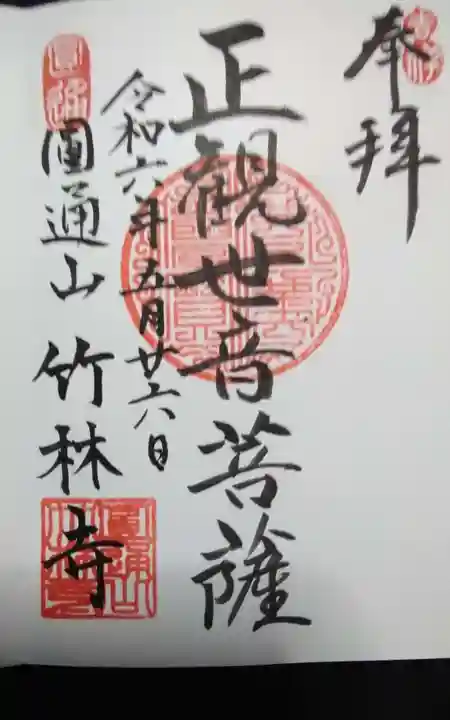 奉拜
正観世音菩薩
令和六年五月廿六日
圓通山 竹林寺